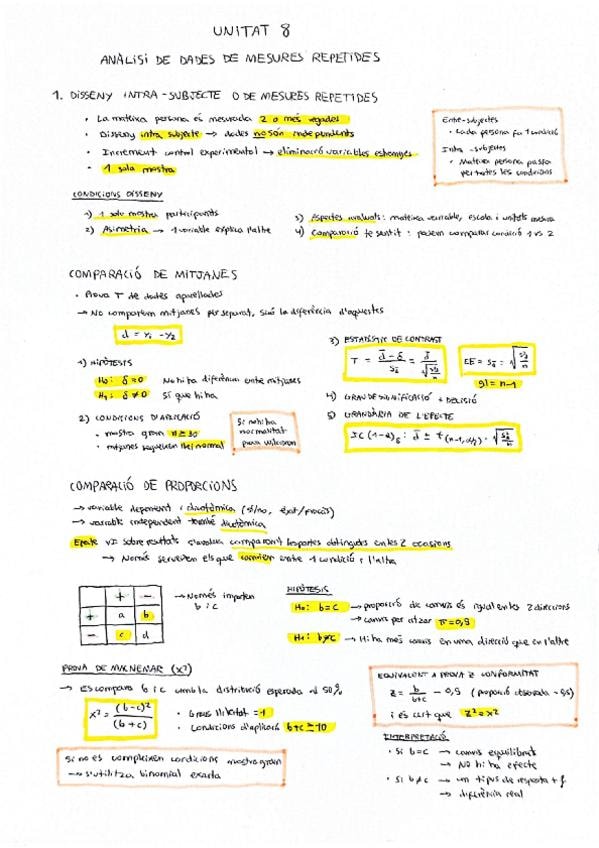 UNITAT 8
ANÀLISI DE DADES DE MESURES REPETIDES
1. DISSENY INTRA-SUBJECTE O DE MESURES REPETIDES
• La mateixa persona és mesurada 2 o més vegades
• Disseny intra subjecte → dades no són independents
• Increment control experimental → eliminació variables estranyes
• 1 sola mostra
Entre-subjectes
• Cada persona fa 1 condició
Intra-subjectes
• Mateixa persona passa
per totes les condicions
CONDICIONS DISSENY
1) 1 sola mostra participants
2) Asimetria → 1 variable explica l'altre
3) Aspectes avaluats: mateixa variable, escala i unitats mesura
4) Comparació té sentit: podem comparar condició 1 vs 2
COMPARACIÓ DE MITJANES
• Prova T de dades aparellades
→ No comparem mitjanes per separat, sinó la diferència d'aquestes
d = Y₁ - Y₂
1) HIPÒTESIS
H₀: δ = 0 No hi ha diferència entre mitjanes
H₁: δ ≠ 0 Sí que hi ha
2) CONDICIONS D'APLICACIÓ
• mostra gran n ≥ 30
• mitjanes segueixen llei normal
Si no hi ha
normalitat
prova wilcoxon
3) ESTADÍSTIC DE CONTRAST
T = (d̄ - δ) / S_d̄ = d̄ / √(S²d / n)
EE = S_d̄ = √(S²d / n)
gl = n-1
4) GRAU DE SIGNIFICACIÓ + DECISIÓ
5) GRANDÀRIA DE L'EFECTE
IC (1-α)δ : d̄ ± t(n-1, α/2) · √(S²d / n)
COMPARACIÓ DE PROPORCIONS
→ variable dependent: dicotòmica (sí/no, èxit/fracàs)
→ variable independent també dicotòmica
Efecte VI sobre resultats s'avalua comparant les parts obtingudes en les 2 ocasions
→ Només serveixen els que canvien entre 1 condició i l'altra
+ -
+ a b
- c d
→ Només importen
b i c
HIPÒTESIS
H₀: b = c → proporció de canvis és igual en les 2 direccions
→ canvis per atzar π = 0,5
H₁: b ≠ c → Hi ha més canvis en una direcció que en l'altre
PROVA DE MCNEMAR (X²)
→ Es compara b i c amb la distribució esperada al 50%
X² = (b-c)² / (b+c)
• Graus llibertat = 1
• Condicions d'aplicació b+c ≥ 10
Si no es compleixen condicions mostra gran
→ s'utilitza binomial exacta
EQUIVALENT A PROVA Z CONFORMITAT
Z = b / (b+c) - 0,5 (proporció observada - 0,5)
i és cert que Z² = X²
INTERPRETACIÓ
• Si b = c → canvis equilibrats
→ No hi ha efecte
• Si b ≠ c → un tipus de resposta + f.
→ diferència real